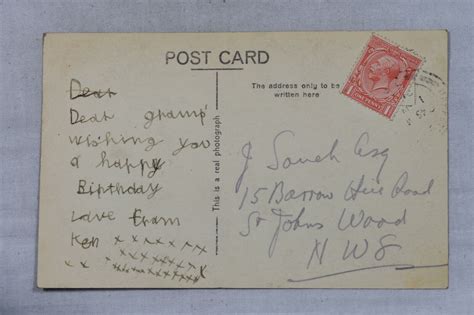 POST CARD
The address only to be
written here
This is a real photograph
Dear
Dear gramp'
wishing you
a happy
Birthday
Love from
Ken x x x x x x x
J Esq
15 Barrow Hill Road
St Johns Wood
N W 8